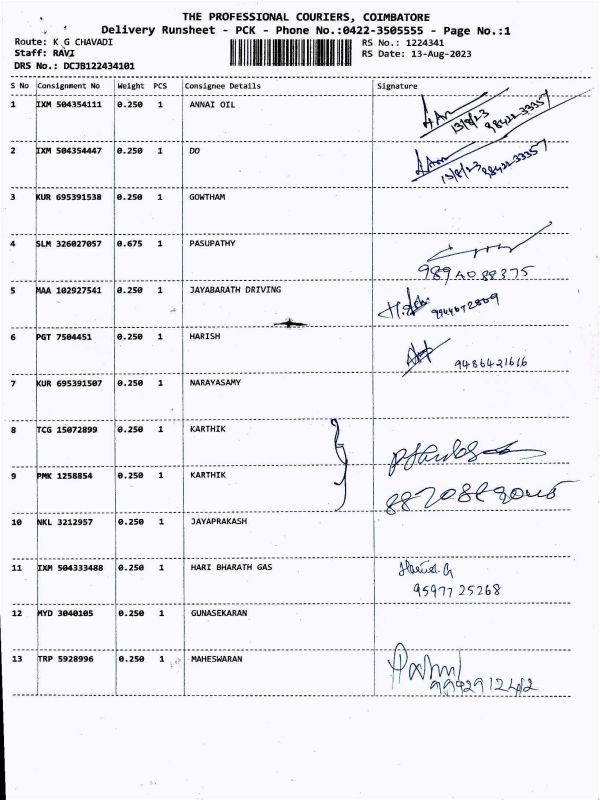 THE PROFESSIONAL COURIERS, COIMBATORE
Delivery Runsheet - PCK - Phone No.:0422-3505555 - Page No.:1
Route: K G CHAVADI RS No.: 1224341
Staff: RAVI RS Date: 13-Aug-2023
DRS No.: DCJB122434101
S No Consignment No Weight PCS Consignee Details Signature
1 IXM 504354111 0.250 1 ANNAI OIL 13/8/23 98422-33357
2 IXM 504354447 0.250 1 DO 13/8/23 98422-33357
3 KUR 695391538 0.250 1 GOWTHAM
4 SLM 326027057 0.675 1 PASUPATHY
9894088375
5 MAA 102927541 0.250 1 JAYABARATH DRIVING
6 PGT 7504451 0.250 1 HARISH
9486421616
7 KUR 695391507 0.250 1 NARAYASAMY
8 TCG 15072899 0.250 1 KARTHIK
9 PMK 1258854 0.250 1 KARTHIK
10 NKL 3212957 0.250 1 JAYAPRAKASH
11 IXM 504333488 0.250 1 HARI BHARATH GAS
9597725268
12 MYD 3040105 0.250 1 GUNASEKARAN
13 TRP 5928996 0.250 1 MAHESWARAN